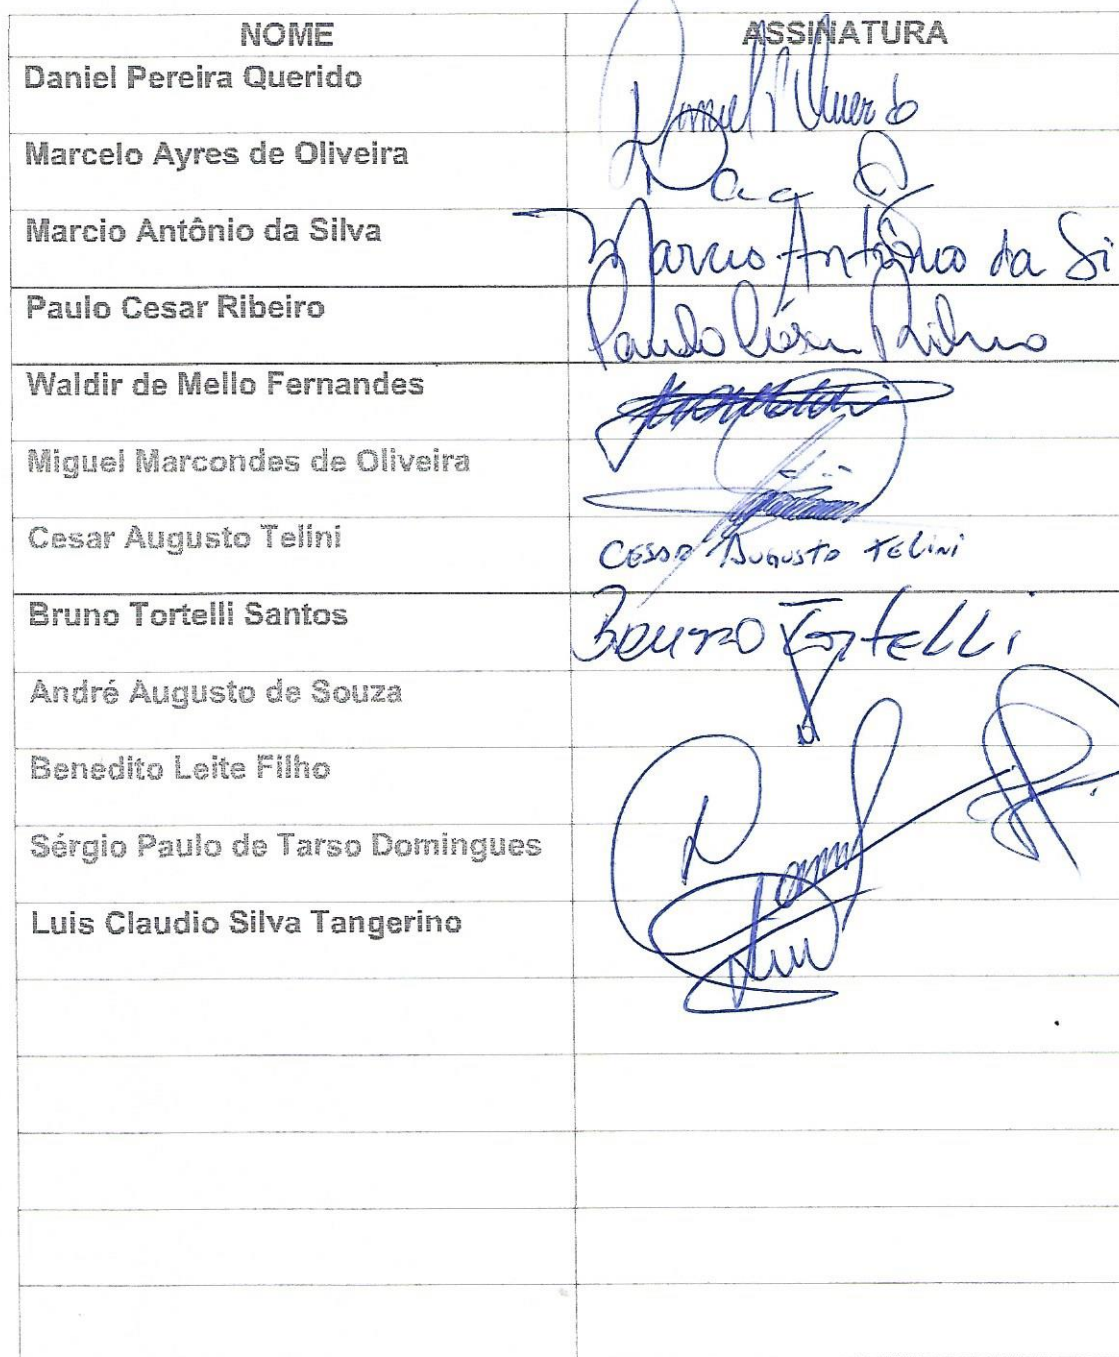 NOME ASSINATURA
Daniel Pereira Querido
Marcelo Ayres de Oliveira
Marcio Antônio da Silva Marcio Antônio da Si
Paulo Cesar Ribeiro Paulo César Ribeiro
Waldir de Mello Fernandes
Miguel Marcondes de Oliveira
Cesar Augusto Telini CESAR AUGUSTO TELINI
Bruno Tortelli Santos Bruno Tortelli
André Augusto de Souza
Benedito Leite Filho
Sérgio Paulo de Tarso Domingues
Luis Claudio Silva Tangerino